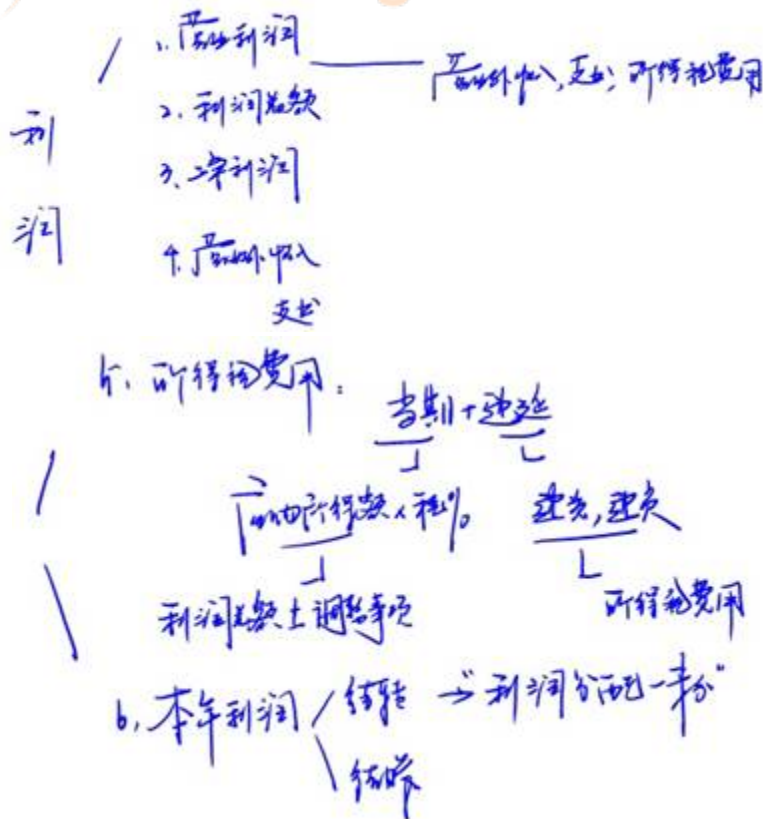 利润
1. 营业利润 —— 营业外收入,支出;所得税费用
2. 利润总额
3. 净利润
4. 营业外收入
支出
5. 所得税费用:
当期+递延
应纳税所得额×税% 递资,递负
利润总额±调整事项 所得税费用
6. 本年利润 结转 → 利润分配—未分"